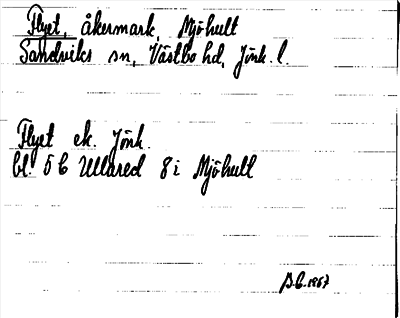 Flyet, åkermark, Mjöhult
Sandviks sn, Västbo hd, Jönk. l.
Flyet ek. Jönk.
bl. 5C Ullared 8i Mjöhult
B.C. 1967